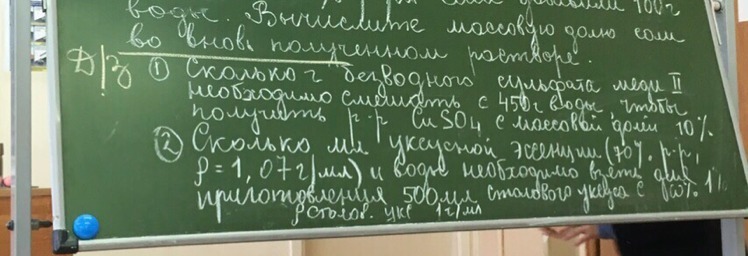 воды. Вычислите массовую долю соли
во вновь полученном растворе.
Д/З ① Сколько г безводного сульфата меди II
необходимо смешать с 450г воды, чтобы
получить р-р CuSO₄ с массовой долей 10%
② Сколько мл уксусной эссенции (70% р-р,
ρ=1,07г/мл) и воды необходимо взять для
приготовления 500мл столового уксуса с
ρ столов. укс 1г/мл